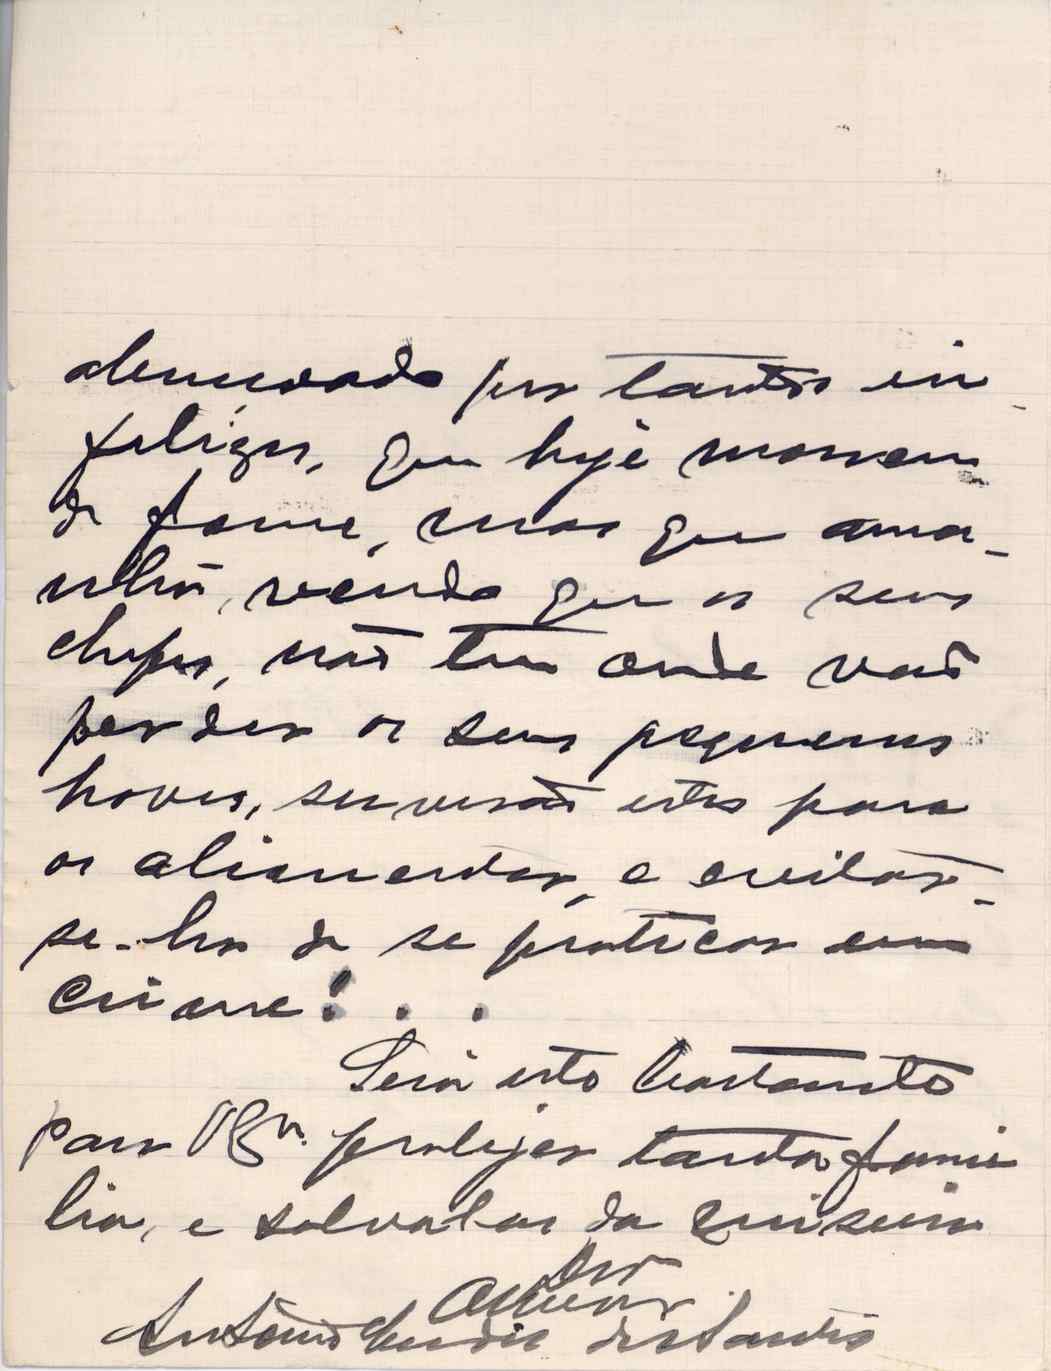 por tantos in-
felizes, que hoje morrem
de fome, mas que ama-
nhã, vendo que os seus
chefes, não tem onde vão
perder os seus pequenos
haveres, servirão estes para
os alimentar, e evitar-
se-ha de se praticar um
crime! . . .
Será isto bastante
para VEx.ª proteger tanta fami
lia, e salvalas da
António dos Santos